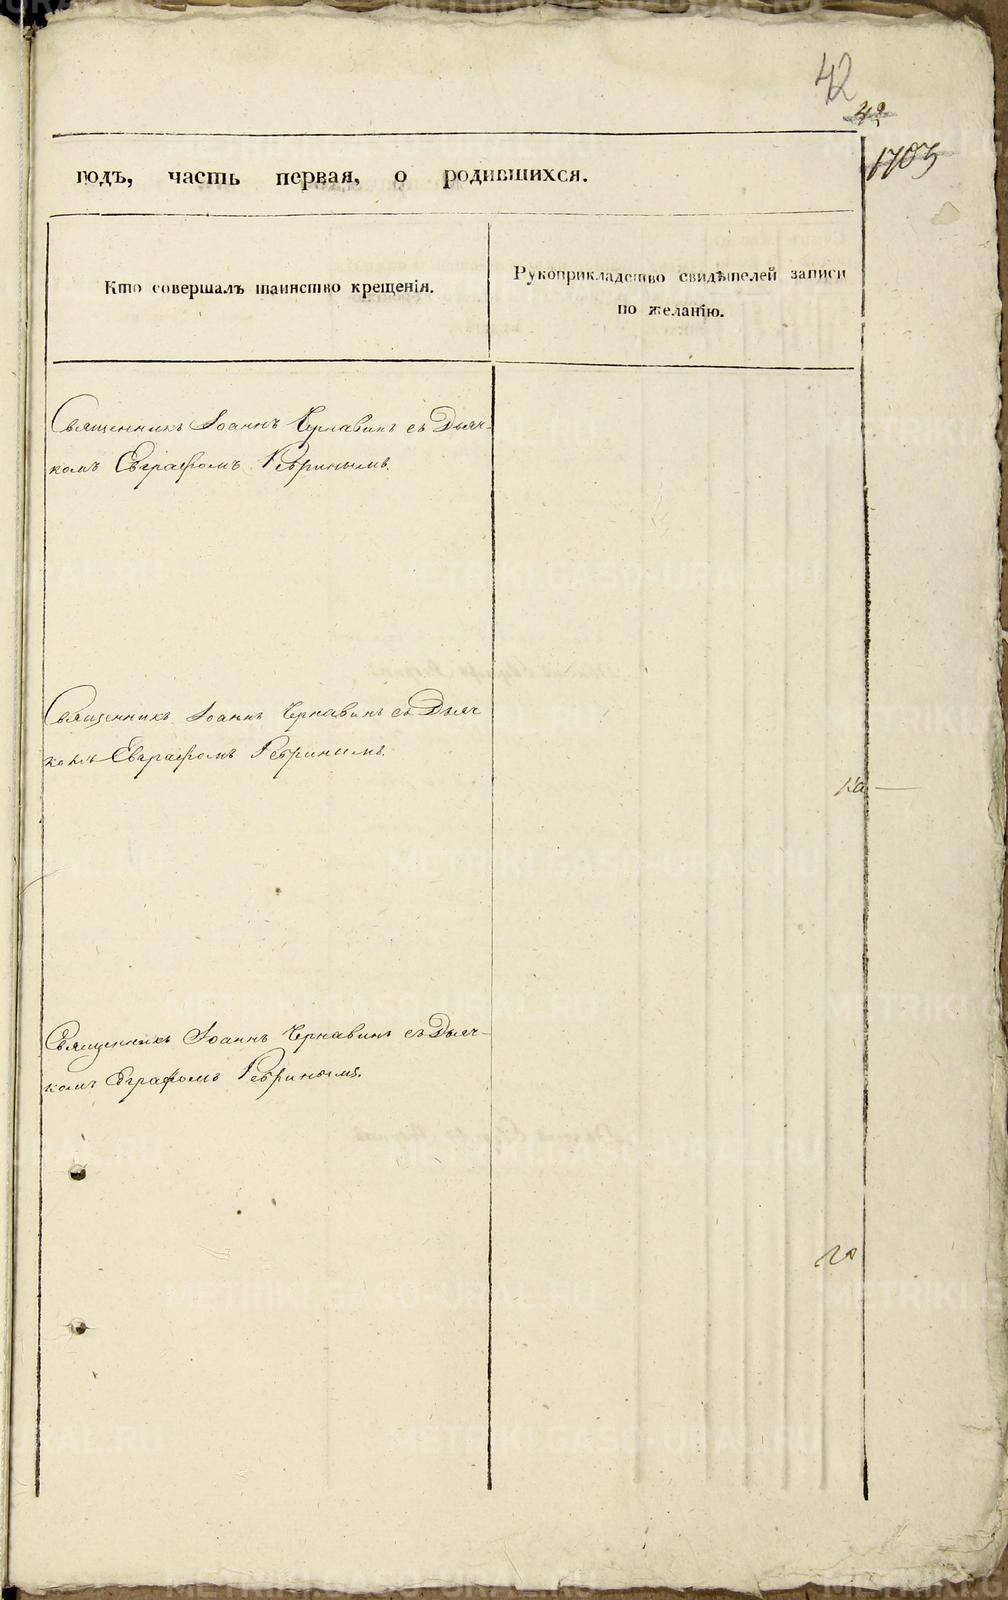 42
42
1703
годъ, часть первая, о родившихся.
Кто совершалъ таинство крещенія.
Рукоприкладство свидѣтелей записи
по желанію.
Священникъ Іоаннъ Чернавинъ съ Дьяч-
комъ Евграфомъ Ребринымъ.
Священникъ Іоаннъ Чернавинъ съ Дьяч
комъ Евграфомъ Ребринымъ.
Священникъ Іоаннъ Чернавинъ съ Дьяч-
комъ Евграфомъ Ребринымъ.
METRIKI.GASO-URAL.RU